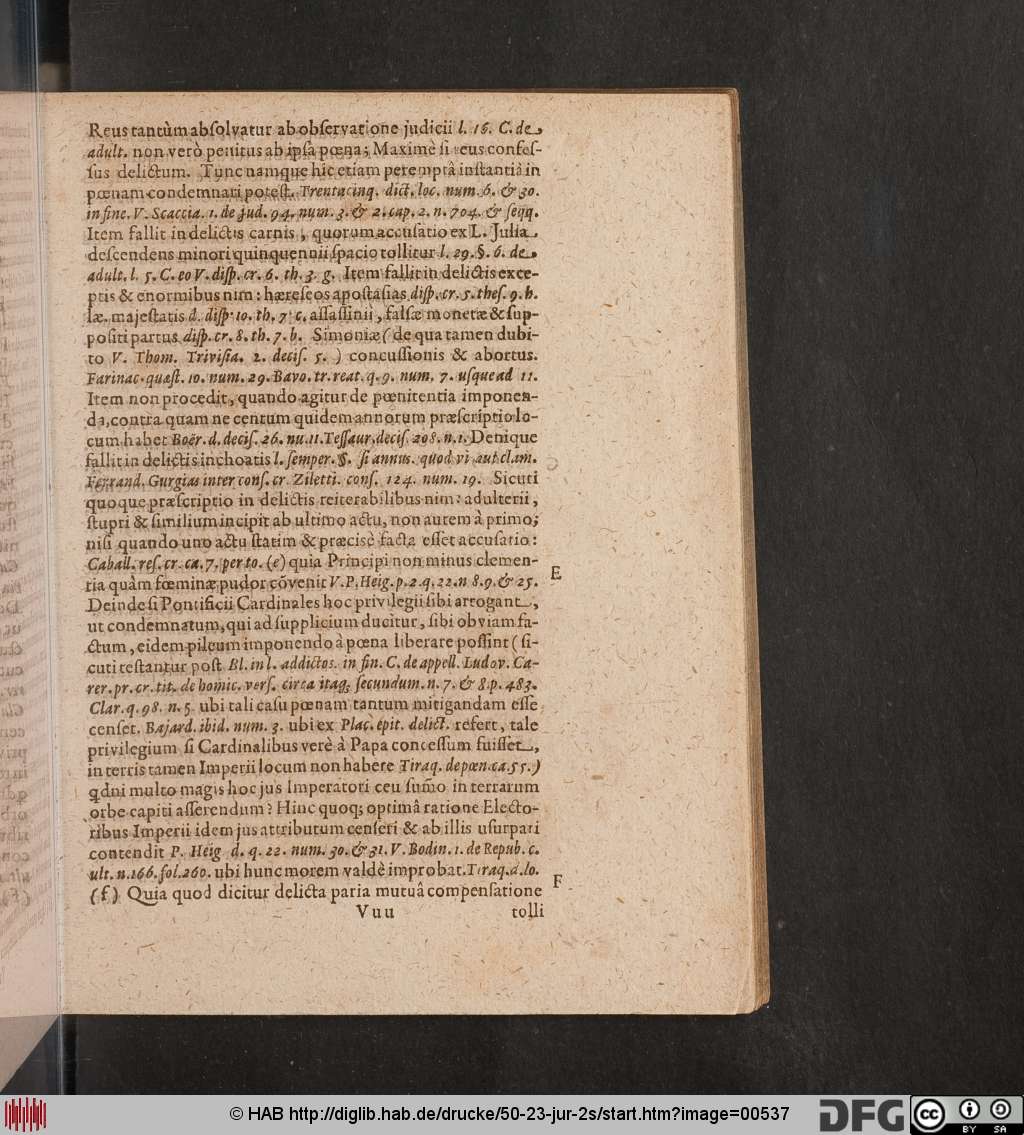 Reus tantùm absolvatur ab observatione judicii l. 16. C. de
adult. non verò penitus ab ipsâ pœna; Maximè si reus confes-
sus delictum. Tunc namque hic etiam peremptâ instantiâ in
pœnam condemnari potest. Trentacinq. dict. loc. num. 6. & 30.
in fine. V. Scaccia. 1. de jud. 94. num. 3. & 2. cap. 2. n. 704. & seqq.
Item fallit in delictis carnis, quorum accusatio ex L. Julia
descendens minori quinquennii spacio tollitur l. 29. §. 6. de
adult. l. 5. C. eo V. disp. cr. 6. th. 3. g. Item fallit in delictis exce-
ptis & enormibus nim: hæreseos apostasias disp. cr. 5. thes. 9. h.
læ. majestatis d. disp. 10. th. 7. c. assassinii, falsæ monetæ & sup-
positi partus disp. cr. 8. th. 7. h. Simoniæ (de qua tamen dubi-
to V. Thom. Trivisia. 2. decis. 5.) concussionis & abortus.
Farinac. quæst. 10. num. 29. Bavo. tr. reat. q. 9. num. 7. usque ad 11.
Item non procedit, quando agitur de pœnitentia imponen-
da, contra quam ne centum quidem annorum præscriptio lo-
cum habet Boër. d. decis. 26. nu. 11. Tessaur. decis. 208. n. 1. Denique
fallit in delictis inchoatis l. semper. §. si annus. quod vi aut clam.
Ferrand. Gurgias inter cons. cr. Ziletti. cons. 124. num. 19. Sicuti
quoque præscriptio in delictis reiterabilibus nim: adulterii,
stupri & similium incipit ab ultimo actu, non autem à primo;
nisi quando uno actu statim & præcisè facta esset accusatio:
Caball. res. cr. ca. 7. per to. (e) quia Principi non minus clemen-
tia quàm fœminæ pudor cōvenit V. P. Heig. p. 2. q. 22. n 8. 9. & 25.
E
Deinde si Pontificii Cardinales hoc privilegii sibi arrogant,
ut condemnatum, qui ad supplicium ducitur, sibi obviam fa-
ctum, eidem pileum imponendo à pœna liberare possint (si-
cuti testantur post Bl. in l. addictos. in fin. C. de appell. Ludov. Ca-
rer. pr. cr. tit. de homic. vers. circa itaq; secundum. n. 7. & 8. p. 483.
Clar. q. 98. n. 5. ubi tali casu pœnam tantum mitigandam esse
censet. Bajard. ibid. num. 3. ubi ex Plac. epit. delict. refert, tale
privilegium si Cardinalibus verè à Papa concessum fuisset,
in terris tamen Imperii locum non habere Tiraq. de pœn. ca. 55.)
qdni multo magis hoc jus Imperatori ceu sum̃o in terrarum
orbe capiti asserendum? Hinc quoq; optimâ ratione Electo-
ribus Imperii idem jus attributum censeri & ab illis usurpari
contendit P. Heig d. q. 22. num. 30. & 31. V. Bodin. 1. de Repub. c.
ult. n. 166. fol. 260. ubi hunc morem valdè improbat. Tiraq. d. lo.
(f) Quia quod dicitur delicta paria mutuâ compensatione
F
Vuu tolli
© HAB http://diglib.hab.de/drucke/50-23-jur-2s/start.htm?image=00537
DFG
cc BY SA